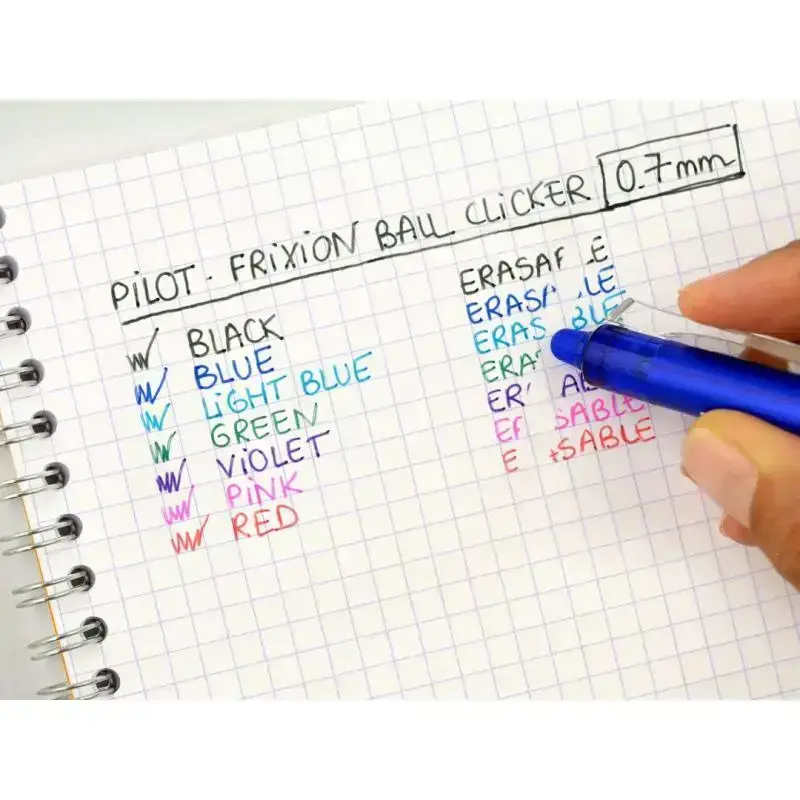 PiLOT. FRiXiON BALL CLiCKER 0.7mm
BLACK
BLUE
LiGHT BLUE
GREEN
ViOLET
PiNK
RED
ERASAF E
ERASA LE
ERAS BLE
ERA
ER AB
EF SABLE
E SABLE